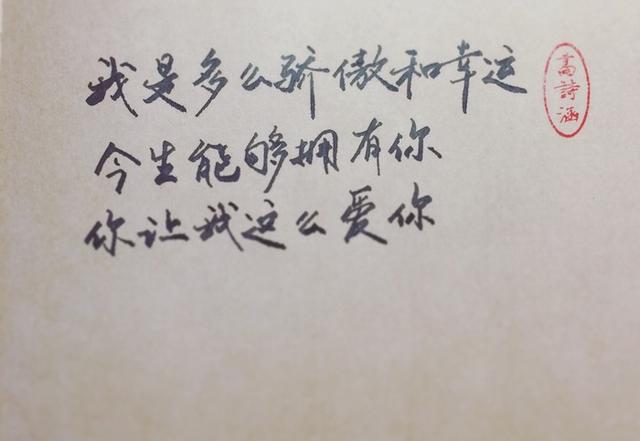 我是多么骄傲和幸运
今生能够拥有你
你让我这么爱你
高詩涵